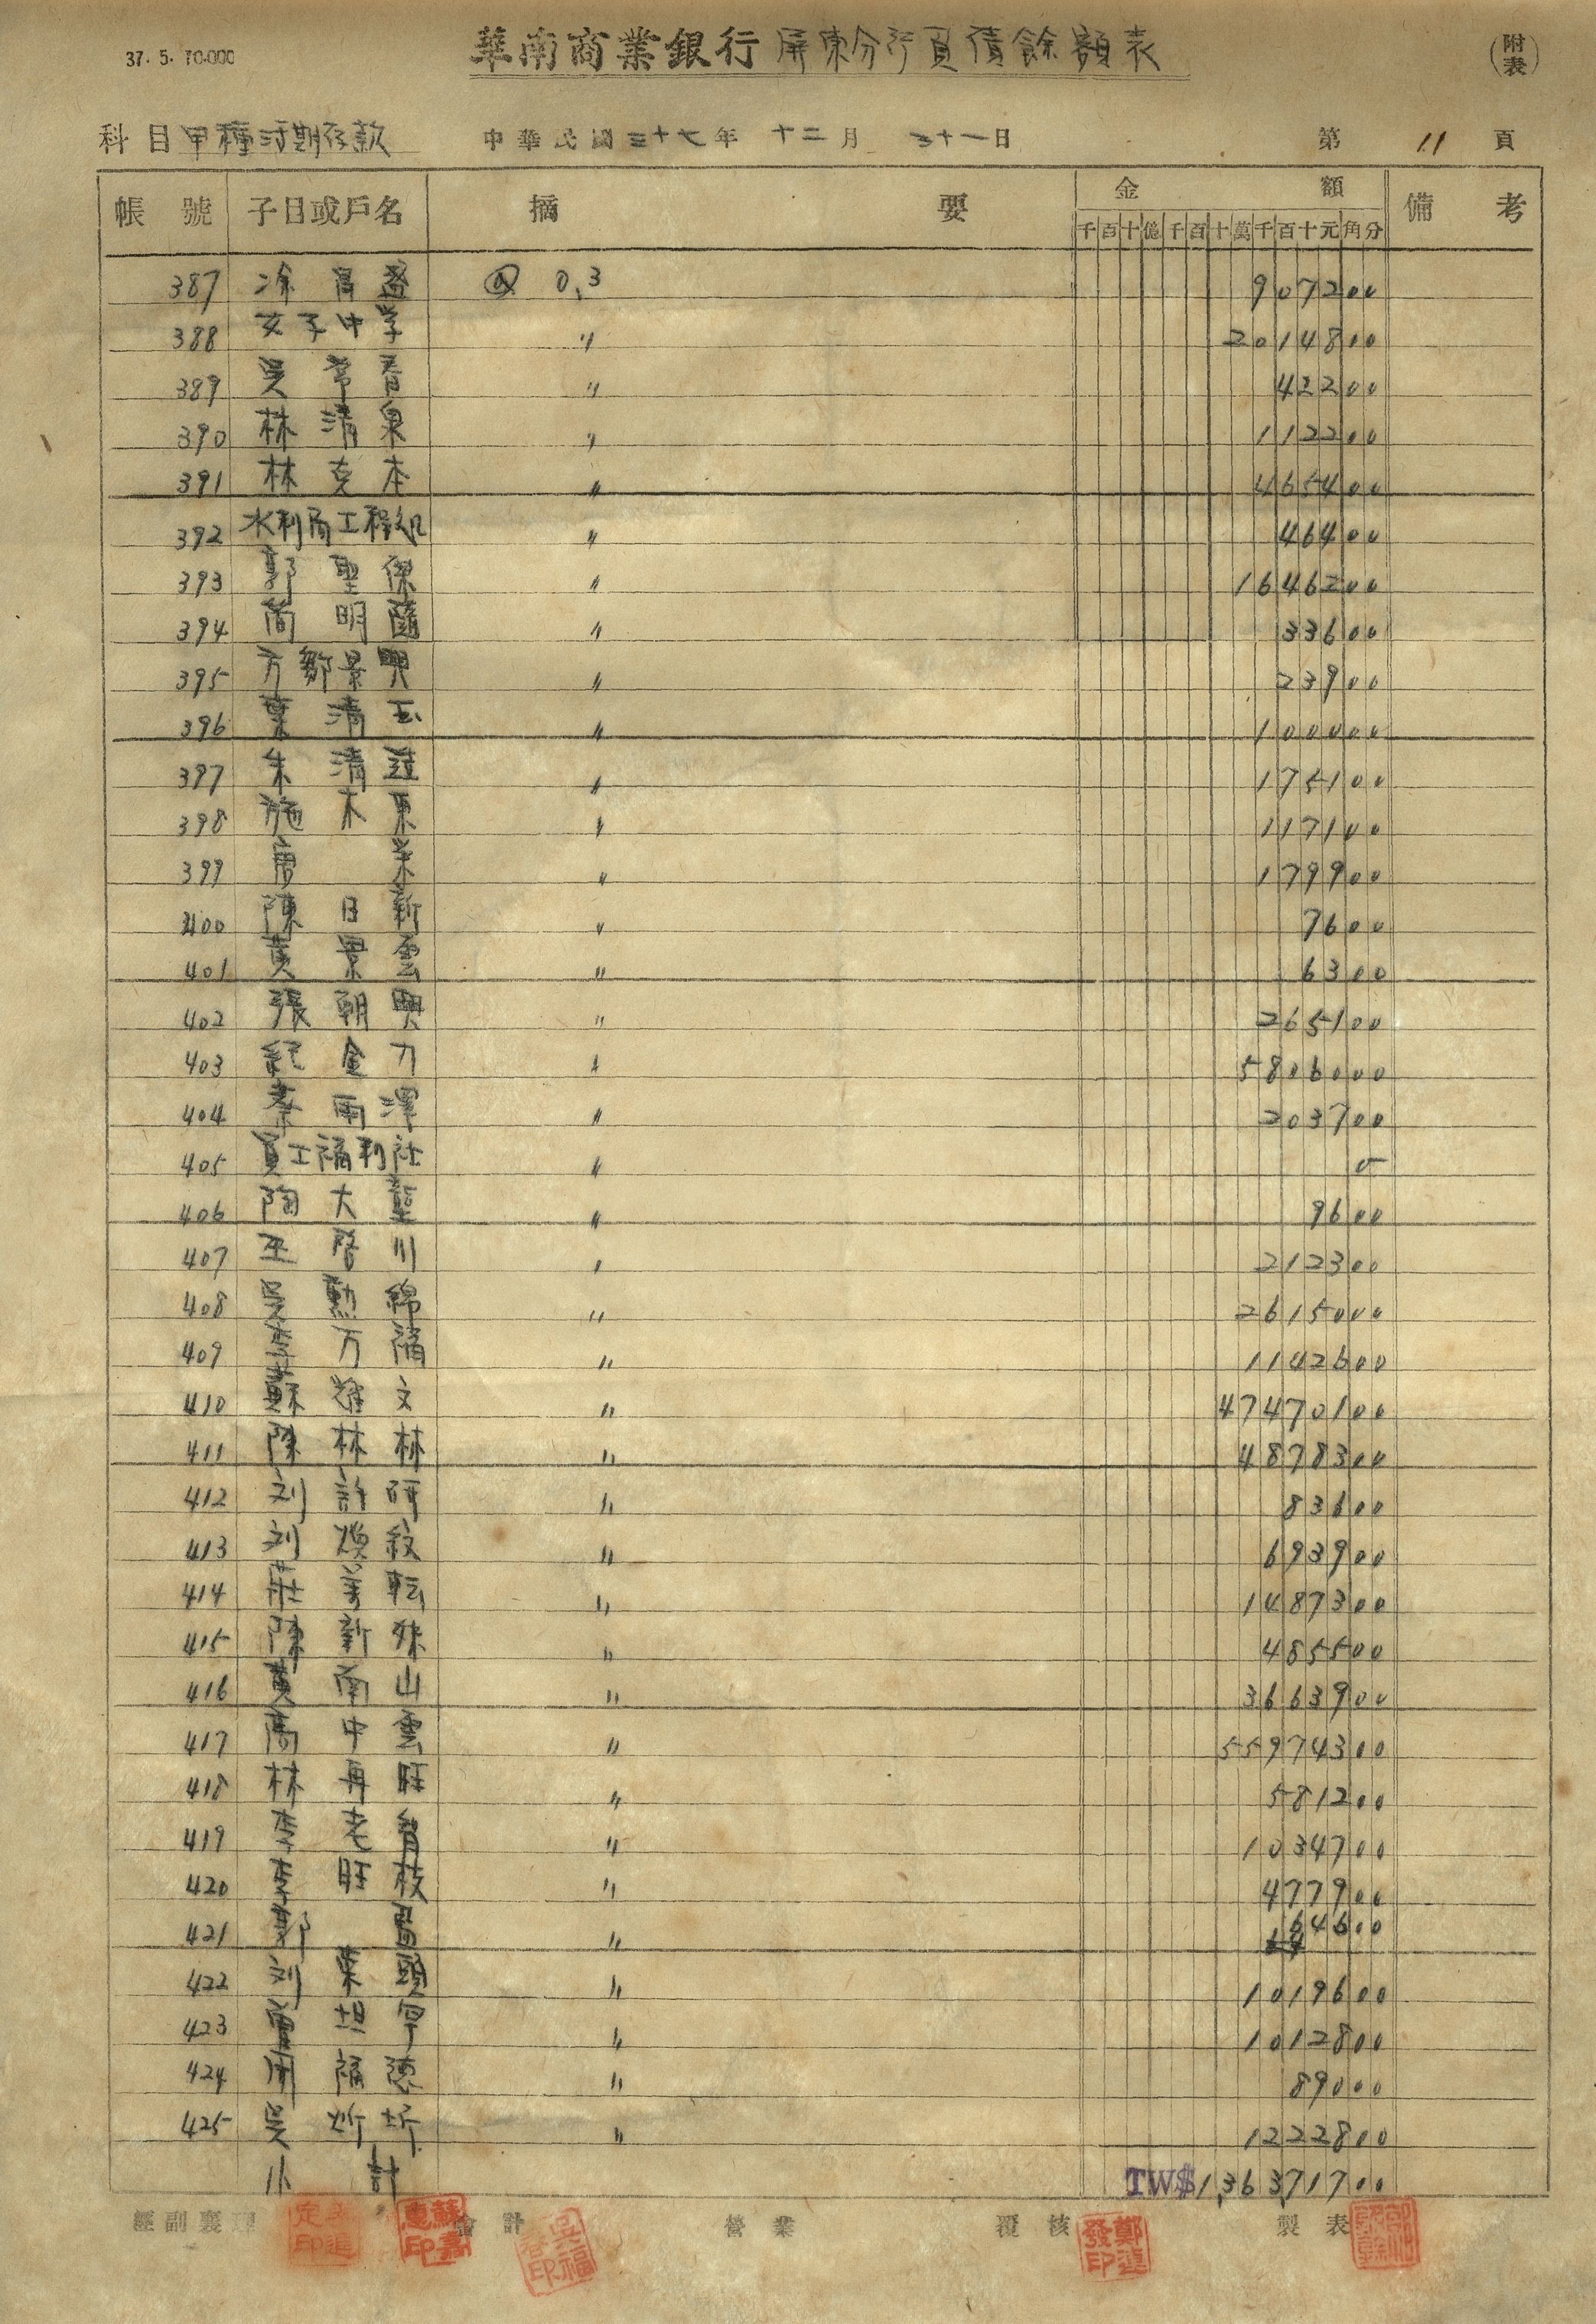 37. 5. 10.000
華南商業銀行屏東分行負債餘額表
(附表)
科目甲種活期存款 中華民國三十七年 十二月 三十一日 第 11 頁
帳號 子目或戶名 摘要 金額 備考
千百十億千百十萬千百十元角分
387 涂 昌 盛 @ 0.3 907200
388 女子中学 〃 2014800
389 吳 常 春 〃 42200
390 林 清 泉 〃 112200
391 林 克 本 〃 465400
392 水利局工程処 〃 46400
393 郭 聖 傑 〃 1646200
394 簡 明 隨 〃 33600
395 方鄭景興 〃 23900
396 葉 清 玉 〃 100000
397 朱 清 〃 175100
398 施 木 原 〃 117100
399 唐 栄 〃 179900
400 陳 日 新 〃 7600
401 黄 景 雲 〃 6300
402 張 朝 興 〃 265100
403 紀 金 力 〃 5806000
404 秦 雨 澤 〃 203700
405 員工福利社 〃 0
406 陶 大 〃 9600
407 巫 啓 川 〃 212300
408 吳 勳 錦 〃 2615000
409 李 万 福 〃 1142600
410 蘇 耀 文 〃 47470100
411 陳 林 林 〃 4878300
412 刘 許 〃 83600
413 刘 煥 紋 〃 693900
414 莊 萬 転 〃 1487300
415 陳 新 〃 485500
416 黄 南 山 〃 3663900
417 高 中 雲 〃 55974300
418 林 再 旺 〃 581200
419 李 老 〃 1034700
420 李 旺 枝 〃 477900
421 郭 〃 64600
422 刘 東 頭 〃 1019600
423 曾 坦 〃 1012800
424 周 福 德 〃 89000
425 吳 炘 圻 〃 1222800
小計 TW$1,363,71700
經副襄理 會計 營業 覆核 製表
蘇嘉惠印
吳福春印
鄭進發印